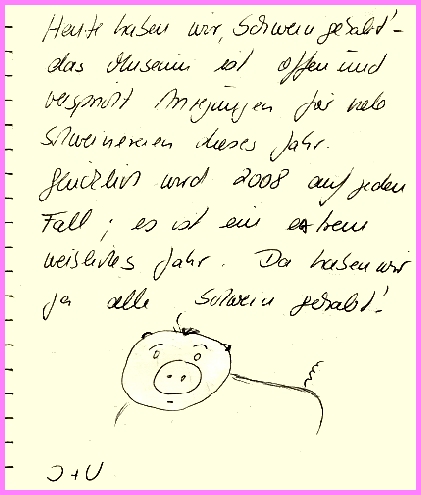 Heute haben wir „Schwein gehabt“ -
das Museum ist offen und
verspricht Anregungen für viele
Schweinereien dieses Jahr.
Glücklich wird 2008 auf jeden
Fall; es ist ein extrem
weibliches Jahr. Da haben wir
ja alle Schwein gehabt!
J + U